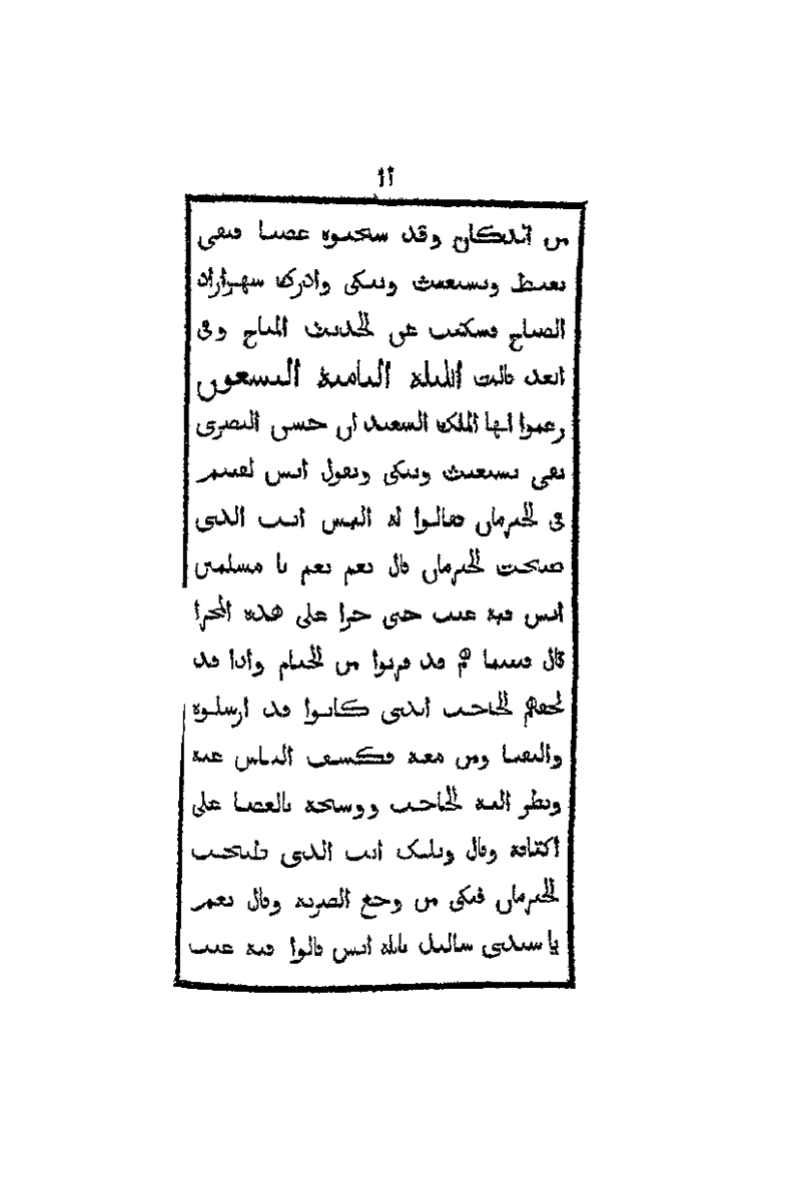 ١١
من الدكان وقد سحبوه غصبا فبقى
يعيط ويستغيث ويبكى وادرك شهرازاد
الصباح فسكتت عن الحديث المباح وفى
الغد قالت الليلة الثامنة التسعون
زعموا ايها الملك السعيد ان حسن البصرى
بقى يستغيث ويبكى ويقول ايش لقيتم
فى الحبرمان فقالوا له اليس انت الذى
طبخت الحبرمان قال نعم نعم يا مسلمين
ايش فيه عيب حتى جرا على هذه المجرا
قال فبينما هم قد قربوا من الخيام واذا قد
لحقهم الحاجب الذى كانوا قد ارسلوه
والبغا ومن معه فكشف الناس عنه
ونظر اليه الحاجب ووسخه بالعصا على
اكتافه وقال ويلك انت الذى طبخت
الحبرمان فبكى من وجع الضربه وقال نعم
يا سيدى سالتك بالله ايش قالوا فيه عيب